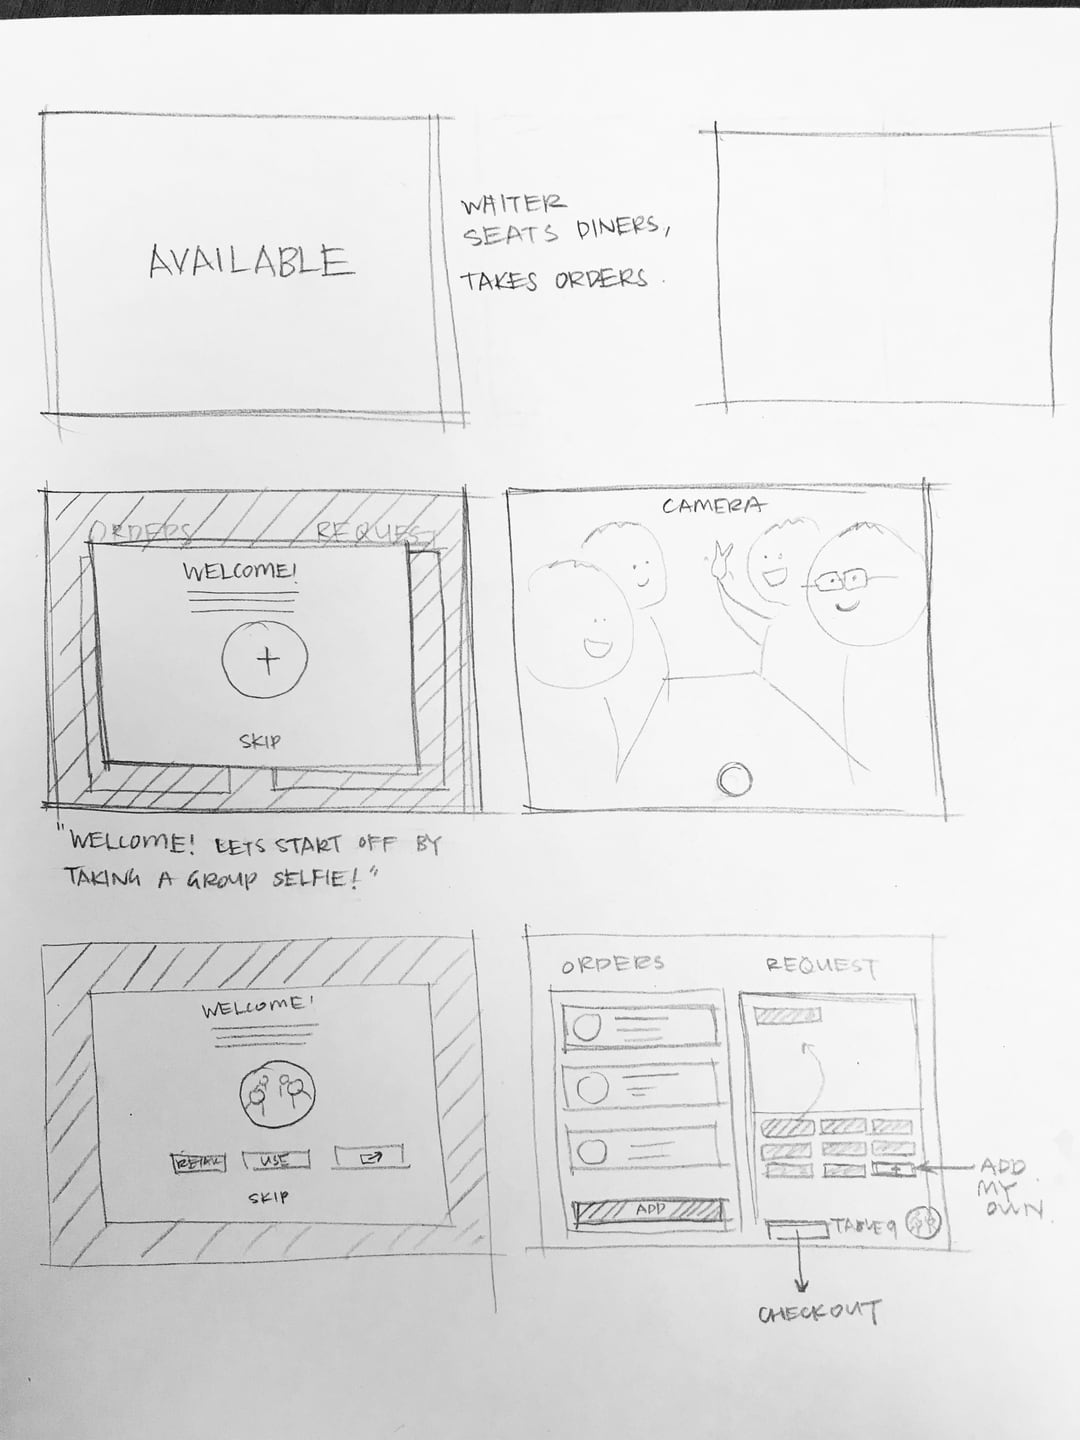 AVAILABLE
WAITER
SEATS DINERS,
TAKES ORDERS.
ORDERS
REQUEST
WELCOME!
SKIP
"WELCOME! LETS START OFF BY
TAKING A GROUP SELFIE!"
CAMERA
WELCOME!
RETAKE
USE
SKIP
ORDERS
REQUEST
ADD
ADD
MY
OWN.
TABLE 9
CHECKOUT